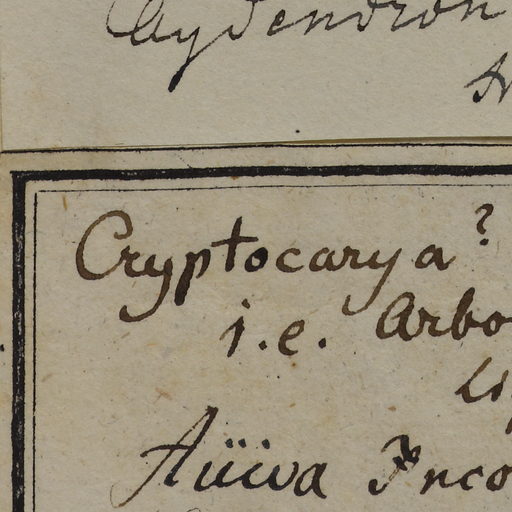 Aydendron
Cryptocarya?
i.e. Arbo
Aüüva Inco